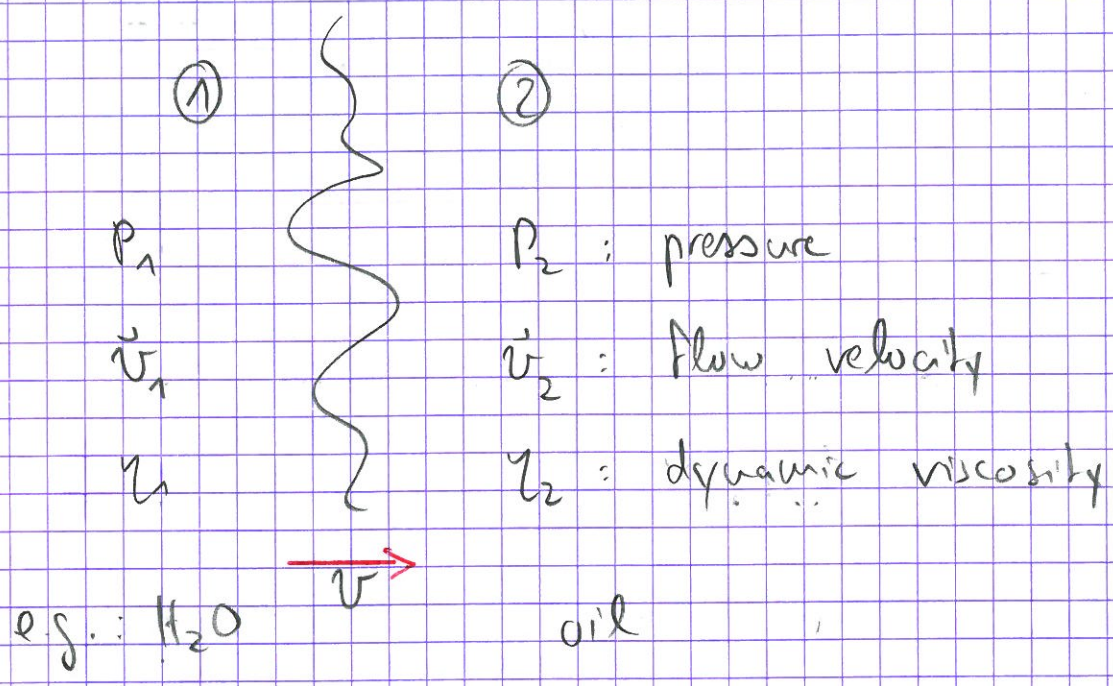 ① ②
p₁ p₂ : pressure
v⃗₁ v⃗₂ : flow velocity
η₁ η₂ : dynamic viscosity
v
e.g.: H₂O oil